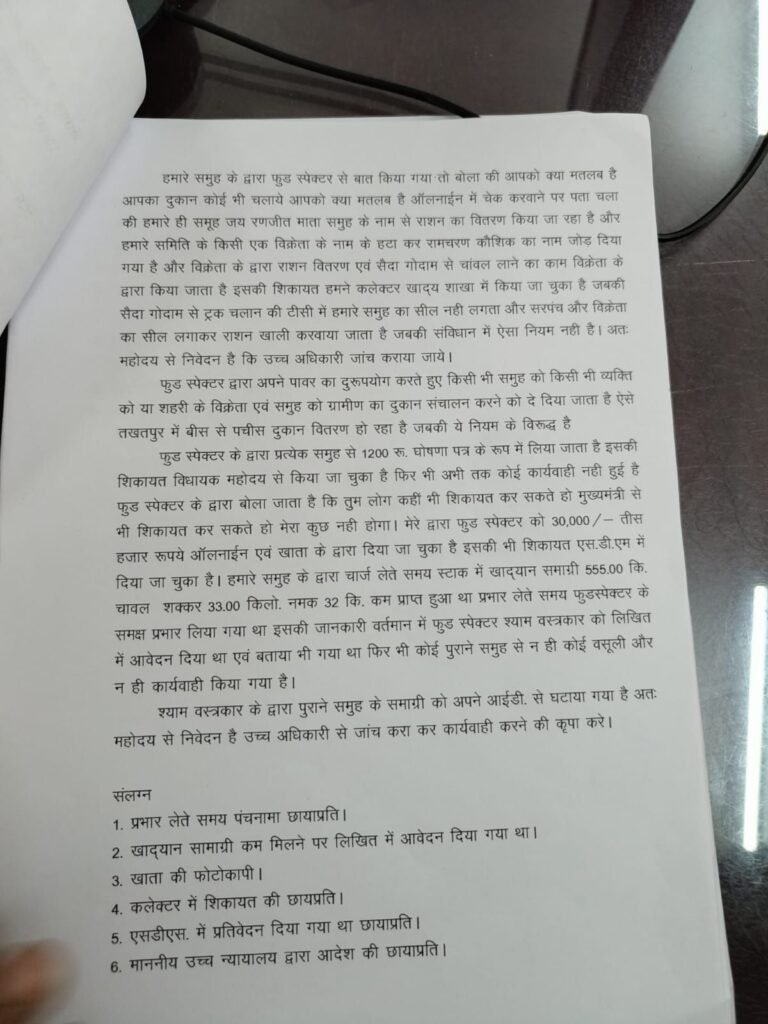 हमारे समुह के द्वारा फुड स्पेक्टर से बात किया गया तो बोला की आपको क्या मतलब है
आपका दुकान कोई भी चलाये आपको क्या मतलब है ऑलनाईन में चेक करवाने पर पता चला
की हमारे ही समूह जय रणजीत माता समुह के नाम से राशन का वितरण किया जा रहा है और
हमारे समिति के किसी एक विक्रेता के नाम के हटा कर रामचरण कौशिक का नाम जोड दिया
गया है और विक्रेता के द्वारा राशन वितरण एवं सैदा गोदाम से चांवल लाने का काम विक्रेता के
द्वारा किया जाता है इसकी शिकायत हमने कलेक्टर खाद्य शाखा में किया जा चुका है जबकी
सैदा गोदाम से ट्रक चलान की टीसी में हमारे समुह का सील नही लगता और सरपंच और विक्रेता
का सील लगाकर राशन खाली करवाया जाता है जबकी संविधान में ऐसा नियम नही है। अतः
महोदय से निवेदन है कि उच्च अधिकारी जांच कराया जाये।
फुड स्पेक्टर द्वारा अपने पावर का दुरूपयोग करते हुए किसी भी समुह को किसी भी व्यक्ति
को या शहरी के विक्रेता एवं समुह को ग्रामीण का दुकान संचालन करने को दे दिया जाता है ऐसे
तखतपुर में बीस से पचीस दुकान वितरण हो रहा है जबकी ये नियम के विरूद्ध है
फुड स्पेक्टर के द्वारा प्रत्येक समुह से 1200 रू. घोषणा पत्र के रूप में लिया जाता है इसकी
शिकायत विधायक महोदय से किया जा चुका है फिर भी अभी तक कोई कार्यवाही नही हुई है
फुड स्पेक्टर के द्वारा बोला जाता है कि तुम लोग कहीं भी शिकायत कर सकते हो मुख्यमंत्री से
भी शिकायत कर सकते हो मेरा कुछ नही होगा। मेरे द्वारा फुड स्पेक्टर को 30,000/– तीस
हजार रूपये ऑलनाईन एवं खाता के द्वारा दिया जा चुका है इसकी भी शिकायत एस.डी.एम में
दिया जा चुका है। हमारे समुह के द्वारा चार्ज लेते समय स्टाक में खाद्यान समाग्री 555.00 कि.
चावल शक्कर 33.00 किलो. नमक 32 कि. कम प्राप्त हुआ था प्रभार लेते समय फुडस्पेक्टर के
समक्ष प्रभार लिया गया था इसकी जानकारी वर्तमान में फुड स्पेक्टर श्याम वस्त्रकार को लिखित
में आवेदन दिया था एवं बताया भी गया था फिर भी कोई पुराने समुह से न ही कोई वसूली और
न ही कार्यवाही किया गया है।
श्याम वस्त्रकार के द्वारा पुराने समुह के समाग्री को अपने आईडी. से घटाया गया है अतः
महोदय से निवेदन है उच्च अधिकारी से जांच करा कर कार्यवाही करने की कृपा करे।
संलग्न
1. प्रभार लेते समय पंचनामा छायाप्रति।
2. खाद्यान सामाग्री कम मिलने पर लिखित में आवेदन दिया गया था।
3. खाता की फोटोकापी।
4. कलेक्टर में शिकायत की छायप्रति।
5. एसडीएस. में प्रतिवेदन दिया गया था छायाप्रति।
6. माननीय उच्च न्यायालय द्वारा आदेश की छायाप्रति।